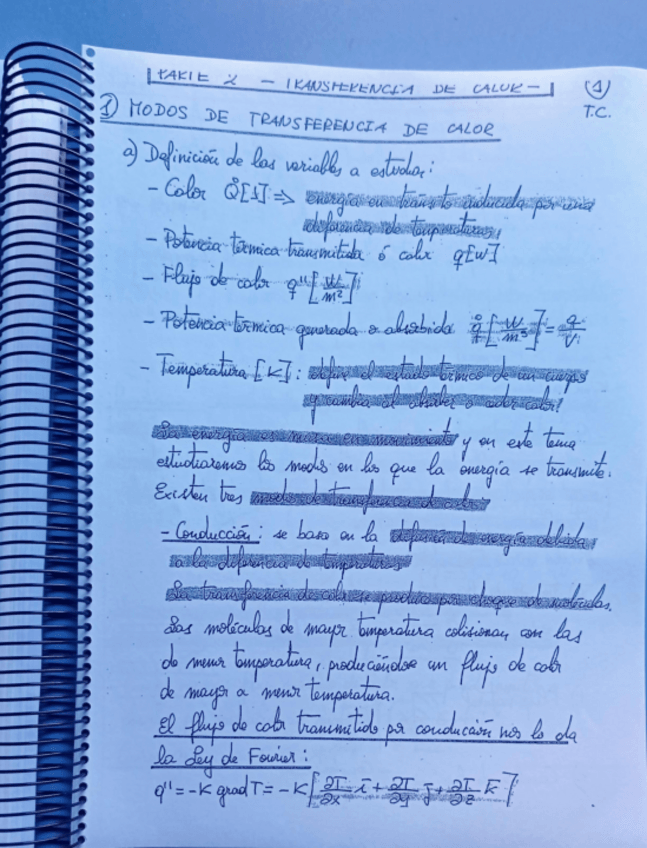 PARTE 2 - TRANSFERENCIA DE CALOR -
1
T.C.
1) MODOS DE TRANSFERENCIA DE CALOR
a) Definición de las variables a estudiar:
- Calor Q̊[J] => energía en tránsito inducida por una
diferencia de temperaturas,
- Potencia térmica transmitida ó calor q[W]
- Flujo de calor q''[W/m²]
- Potencia térmica generada o absorbida q̊[W/m³] = q/V
- Temperatura [K]: define el estado térmico de un cuerpo
y cambia al absorber o ceder calor!
La energía es materia en movimiento y en este tema
estudiaremos los modos en los que la energía se transmite.
Existen tres modos de transferencia de calor:
- Conducción: se basa en la de energía debida
a la diferencia de temperaturas
La transferencia de calor se produce por choque de moléculas.
Las moléculas de mayor temperatura colisionan con las
de menor temperatura, produciéndose un flujo de calor
de mayor a menor temperatura.
El flujo de calor transmitido por conducción nos lo da
la Ley de Fourier:
q'' = -K grad T = -K[∂T/∂x i + ∂T/∂y j + ∂T/∂z k]